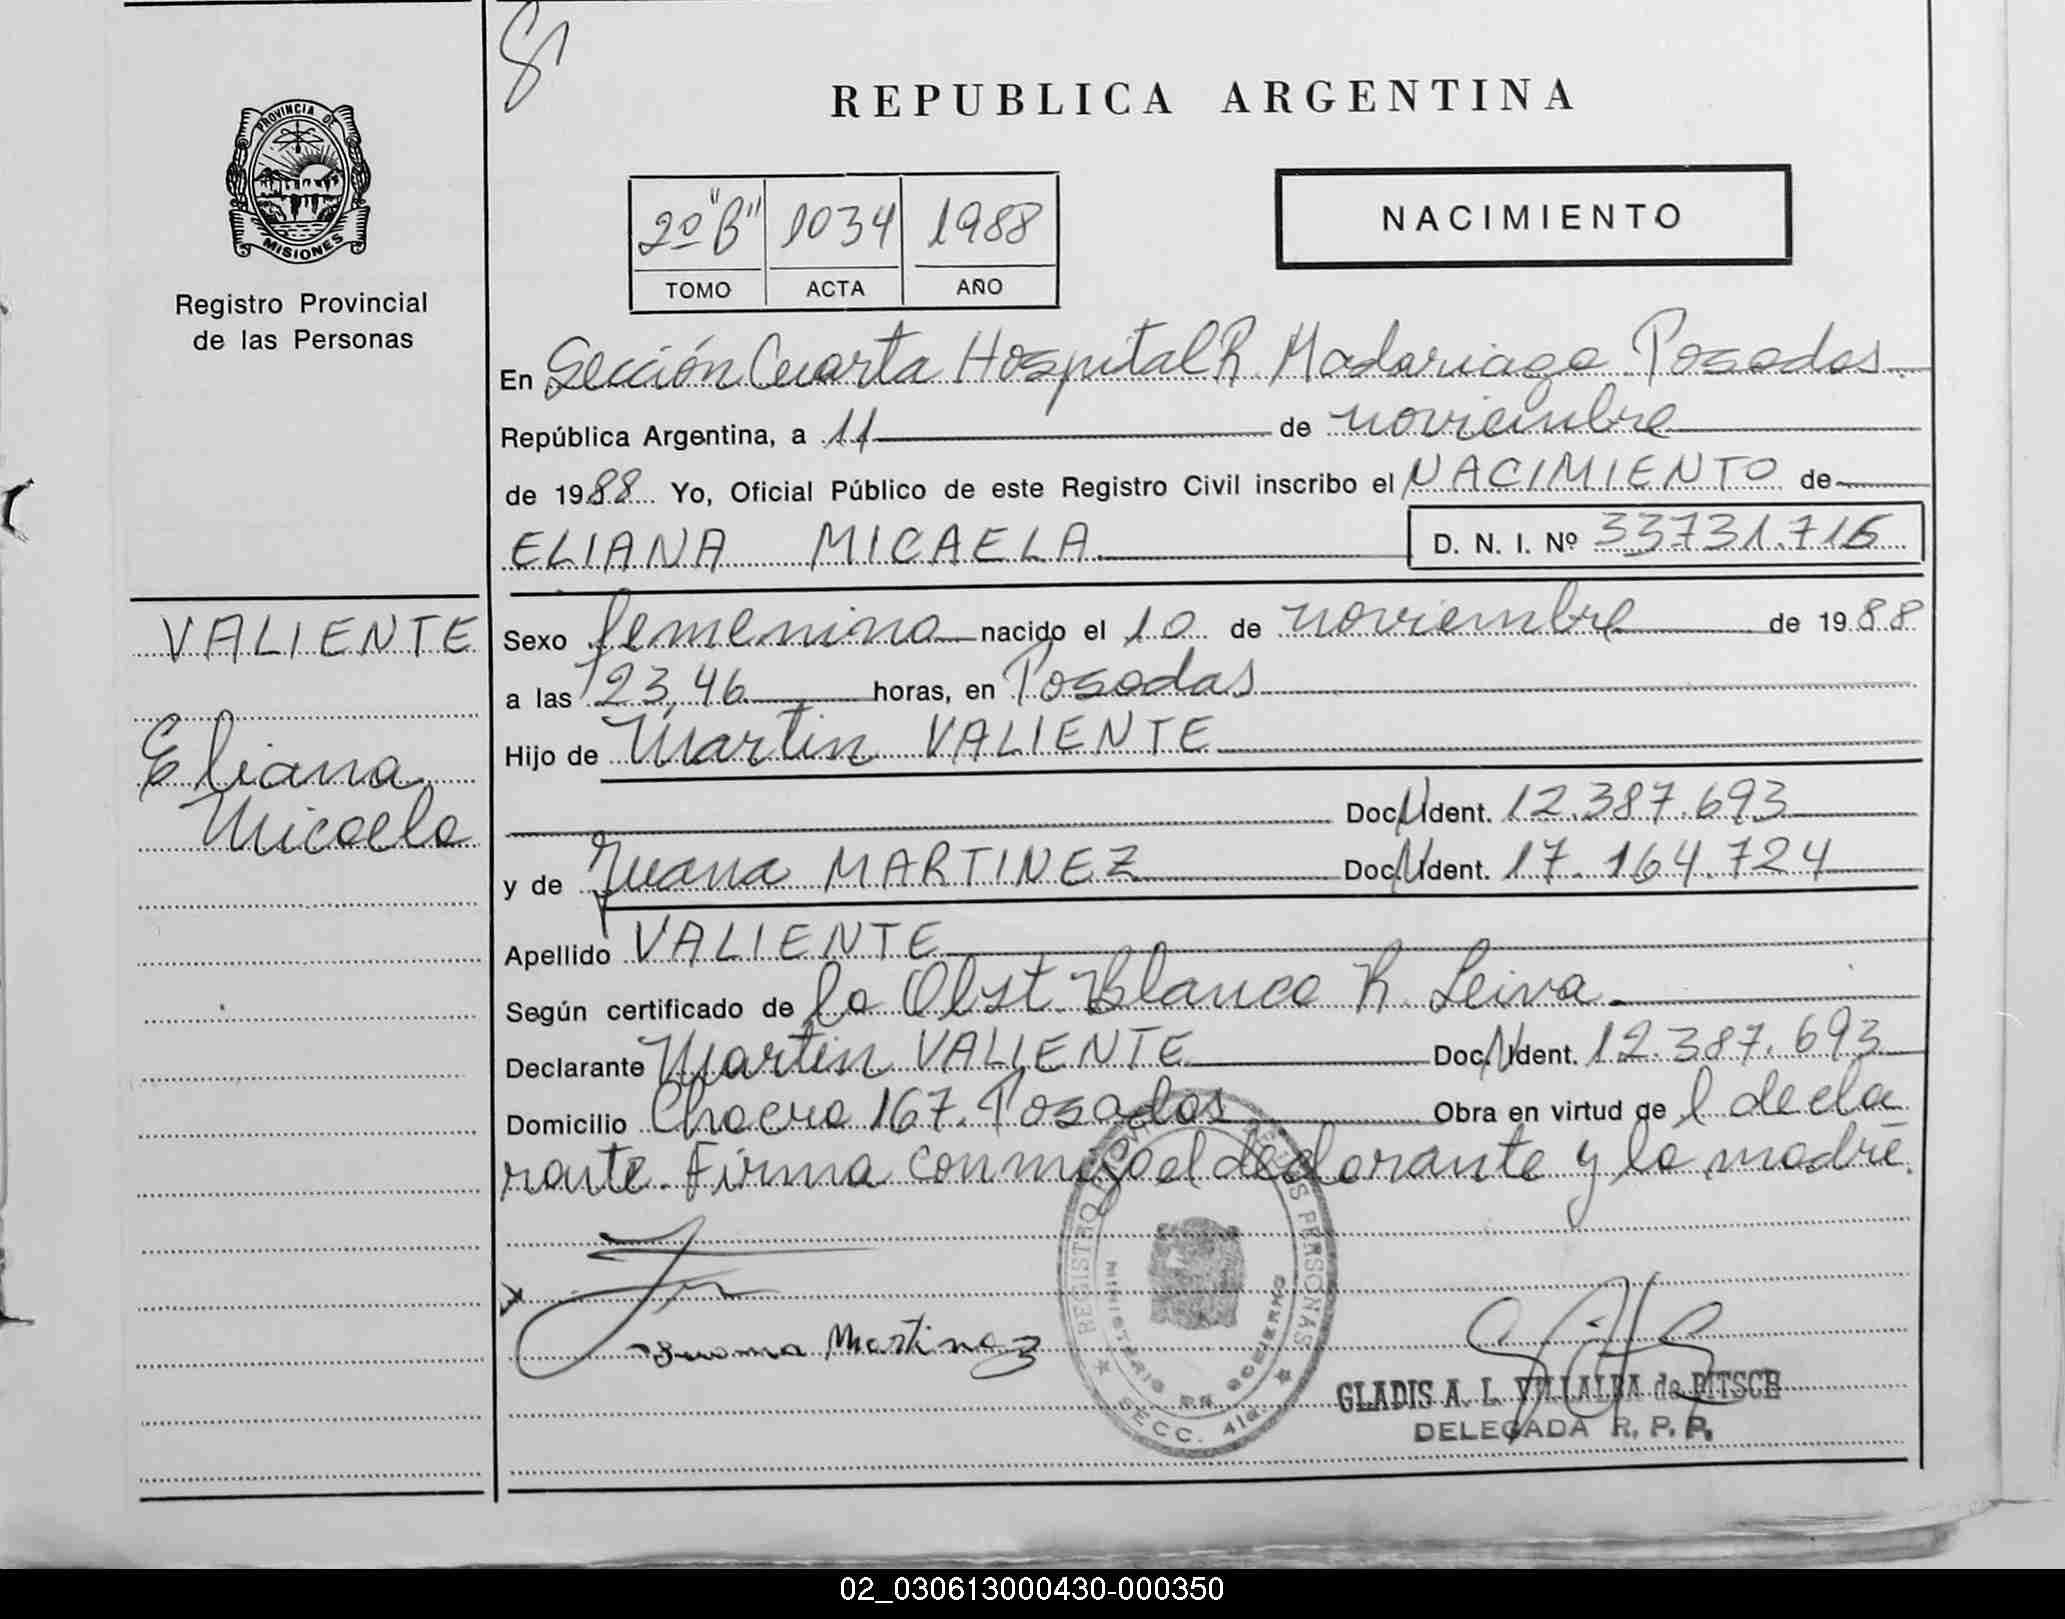 REPUBLICA ARGENTINA
PROVINCIA DE
MISIONES
Registro Provincial
de las Personas
2º "B" 1034 1988
TOMO ACTA AÑO
NACIMIENTO
En Sección Cuarta Hospital R Madariaga Posadas
República Argentina, a 11 de noviembre
de 1988 Yo, Oficial Público de este Registro Civil inscribo el NACIMIENTO de
ELIANA MICAELA D. N. I. Nº 33731.716
VALIENTE
Eliana
Micaela
Sexo femenino nacido el 10 de noviembre de 1988
a las 23,46 horas, en Posadas
Hijo de Martin VALIENTE
Doc. Ident. 12.387.693
y de Juana MARTINEZ Doc. Ident. 17.164.724
Apellido VALIENTE
Según certificado de la Obst. Blanca R. Leiva
Declarante Martin VALIENTE Doc. Ident. 12.387.693
Domicilio Chacra 167. Posadas Obra en virtud de l decla
rante. Firma conmigo el declarante y la madre.
Juana Martinez
REGISTRO DE LAS PERSONAS
MINISTERIO DE GOBIERNO
SECC. 4ta.
GLADIS A. L. VILLALBA de PITSCH
DELEGADA R. P. P.
02_030613000430-000350